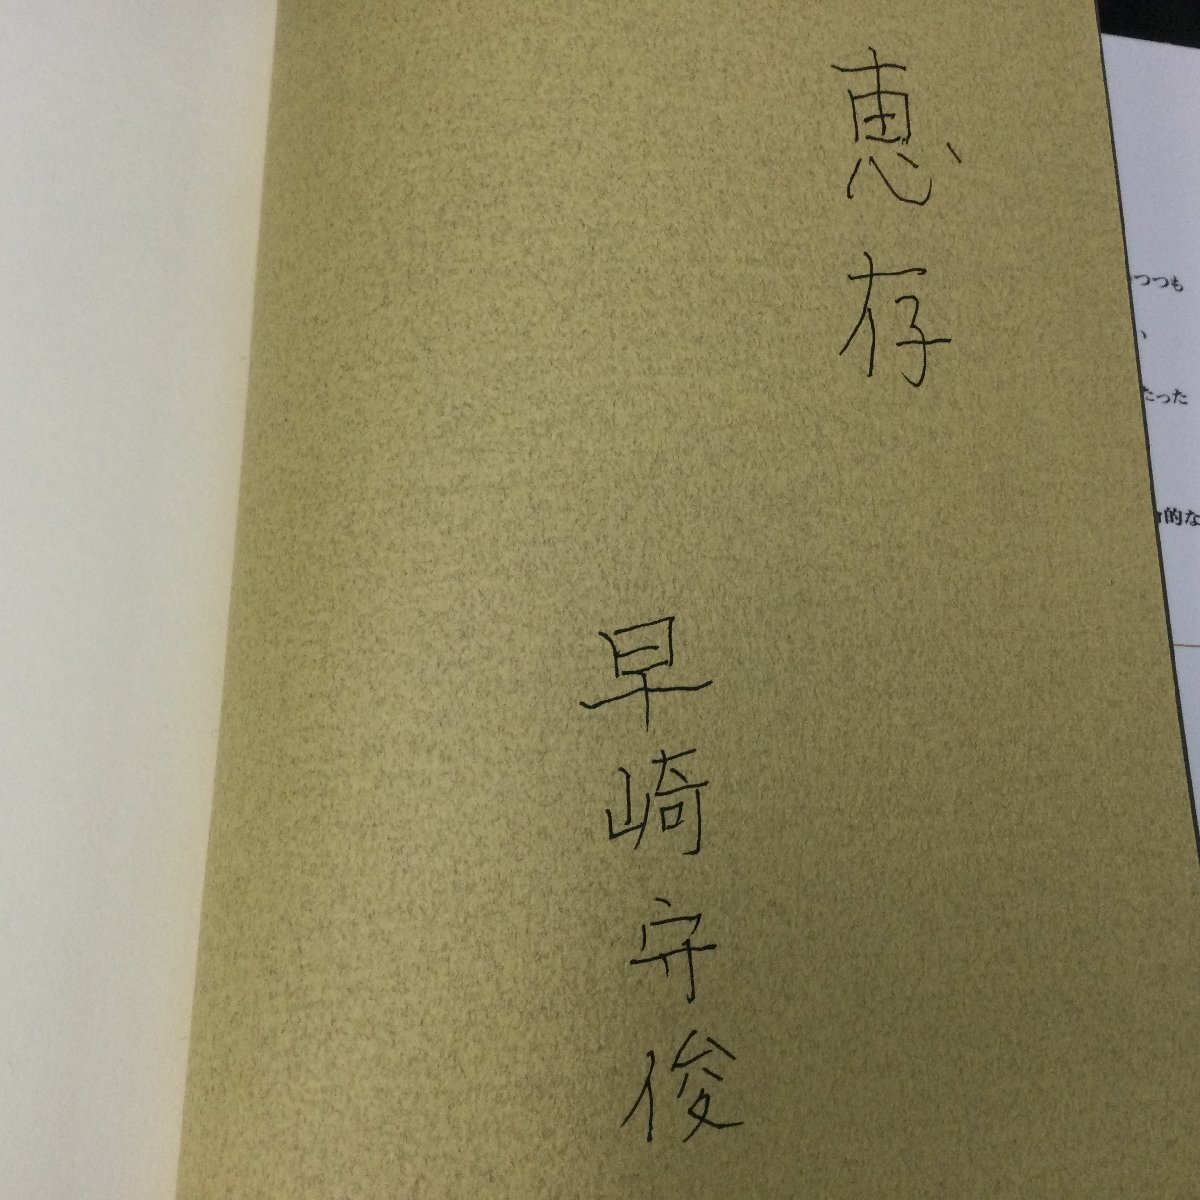 恵存
早崎守俊
つつも
、
たった
的な